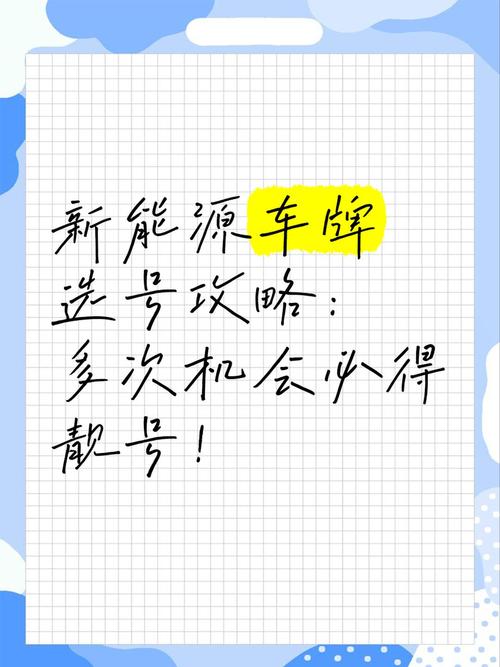 新能源车牌
选号攻略：
多次机会必得
靓号！